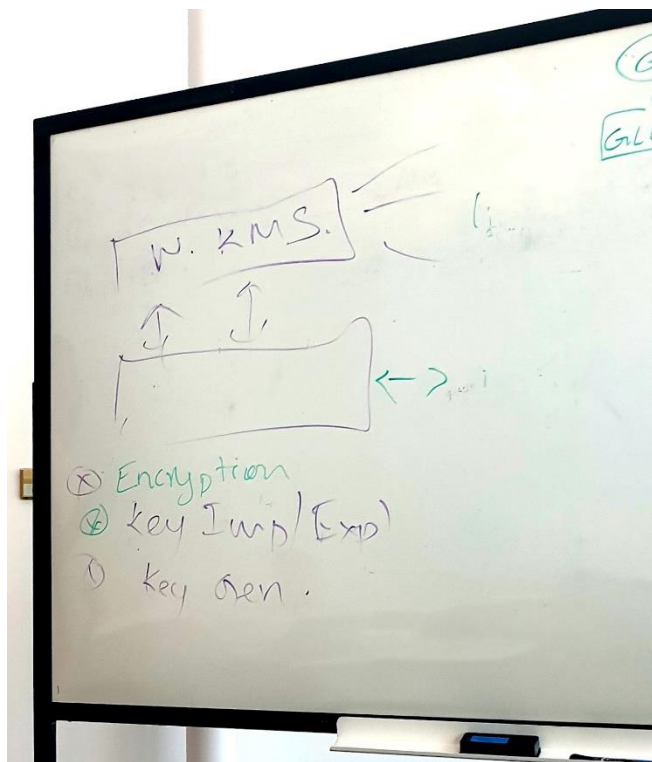 W. KMS.
Encryption
Key Imp/Exp
Key Gen.